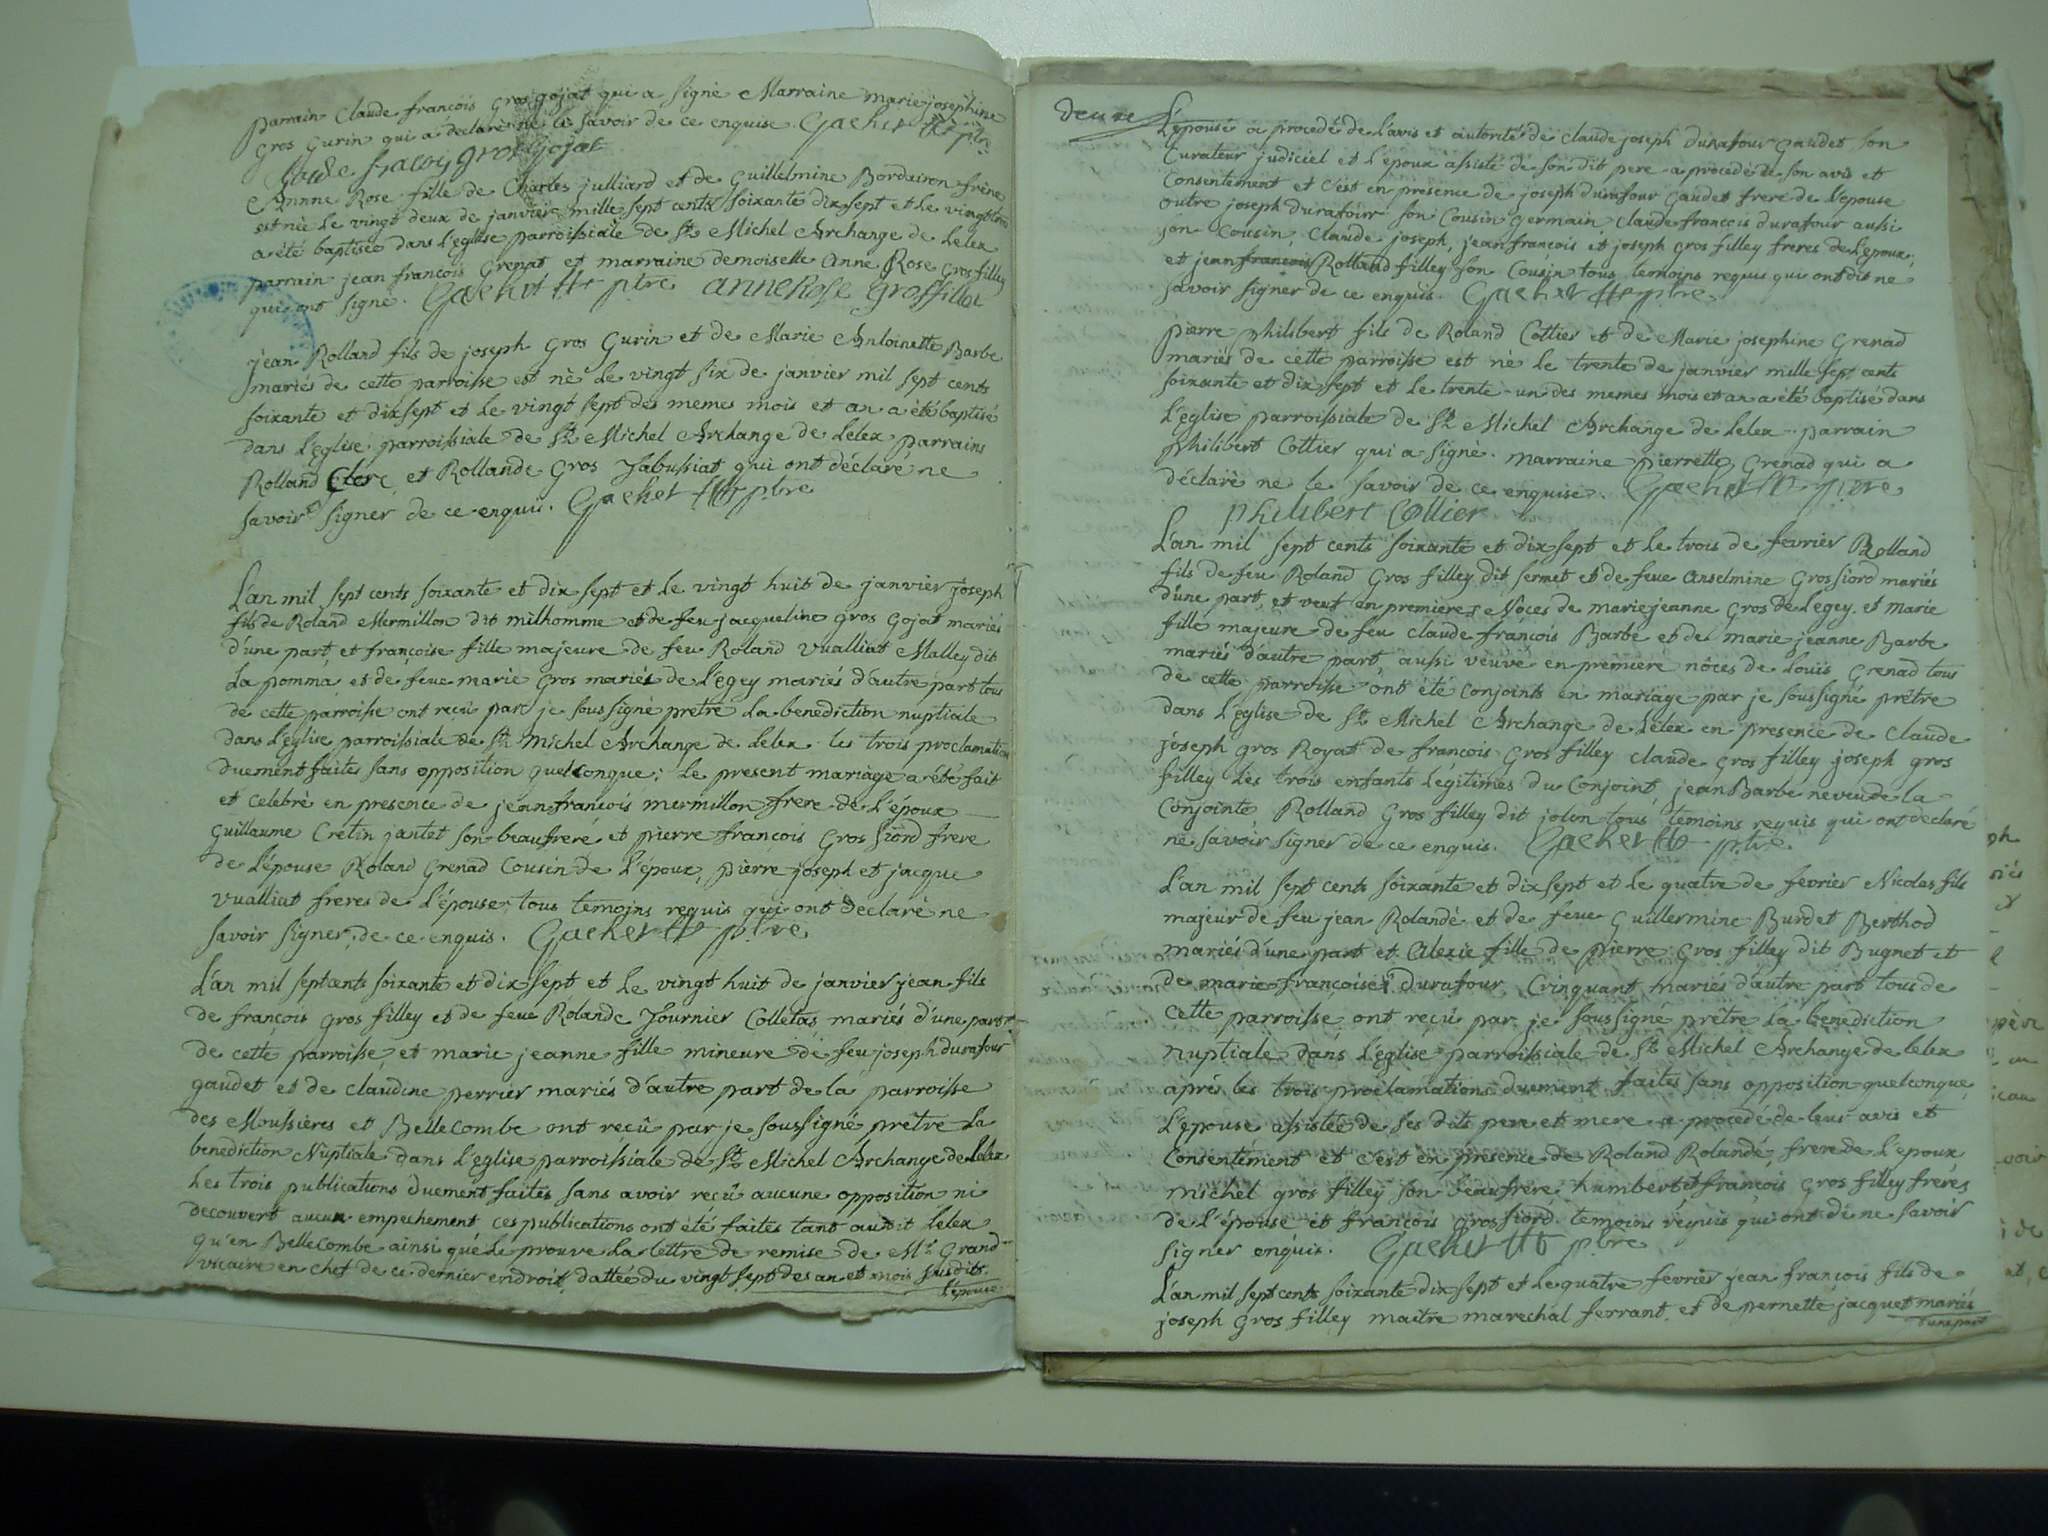 parrain Claude françois gros gojat qui a signé Marraine marie josephine
Gros Gurin qui a déclaré ne le savoir de ce enquise. Gachet ptre
Claude françoy gros gojat
Annne Rose fille de Charles julliard et de Guillelmine Bordairon frêne
est née le vingt deux de janvier mille sept cents soixante dix sept et le vingt
a été baptisée dans l'eglise parroissiale de St Michel Archange de Lelex
parrain jean françois Grenat et marraine demoiselle Anne Rose Gros filley
qui ont signé. Gachet ptre anne Rose Grosfilley
jean Rolland fils de joseph Gros Gurin et de Marie Antoinette Barbe
mariés de cette parroisse est né le vingt six de janvier mil sept cents
soixante et dix sept et le vingt sept des memes mois et an a été baptisé
dans l'eglise parroissiale de St Michel Archange de Lelex parrains
Rolland Clerc et Rollande Gros Jabussiat qui ont déclaré ne
savoir signer de ce enquis. Gachet ptre
L'an mil sept cents soixante et dix sept et le vingt huit de janvier joseph
fils de Roland Mermillon dit milhomme et de feu jacqueline gros Gojat mariés
d'une part, et françoise fille majeure de feu Roland Vualliat Malley dit
la pomma et de feue marie Gros mariés de l'egey mariés d'autre part tous
de cette parroisse ont reçu par je soussigné prêtre la benediction nuptiale
dans l'eglise parroissiale de St Michel Archange de Lelex les trois proclamation
duement faites sans opposition quelconque; le present mariage a été fait
et celebré en presence de jean françois mermillon frere de l'époux
Guillaume Cretin jantet son beaufreré et pierre françois Gros siord frere
de l'épouse Roland Grenad Cousin de l'époux, pierre joseph et jacque
vualliat freres de l'épouse, tous temoins requis qui ont declaré ne
savoir signer, de ce enquis. Gachet ptre
L'an mil septcents soixante et dix sept et le vingt huit de janvier jean fils
de françois gros filley et de feue Rolande Journier Colletas mariés d'une part
de cette parroisse et marie jeanne fille mineure de feu joseph durafour
gaudet et de claudine perrier mariés d'autre part de la parroisse
des Moussieres et BelleCombe ont reçû par je soussigné prêtre la
benediction Nuptiale dans l'eglise parroissiale de St Michel Archange de Lelex
les trois publications duement faites sans avoir reçû aucune opposition ni
decouvert aucun empechement ces publications ont été faites tant audit Lelex
qu'en BelleCombe ainsi que le prouve la lettre de remise de Mr Grand
vicaire en chef de ce dernier endroit dattée du vingt sept des an et mois susdits.
l'epouse
deuxe
L'epouse a procedé de l'avis et autorité de claude joseph durafour gaudet son
Curateur judiciel et l'epoux assisté de son dit pere a procédé de son avis et
Consentement et c'est en presence de joseph durafour Gaudet frere de l'epouse
outre joseph durafour son Cousin germain, claude françois durafour aussi
son Cousin, claude joseph, jean francois et joseph gros filley freres de l'epoux,
et jean francois Rolland filley son Cousin tous temoins requis qui ont dit ne
savoir signer de ce enquis. Gachet ptre
pierre philibert fils de Roland Cottier et de Marie josephine Grenad
mariés de cette parroisse est né le trente de janvier mille sept cents
soixante et dix sept et le trente-un des memes mois et an a été baptisé dans
l'eglise parroissiale de St Michel Archange de Lelex parrain
philibert Cottier qui a signé. marraine pierrette Grenad qui a
déclaré ne le savoir de ce enquise. Gachet ptre
philibert Cottier
L'an mil sept cents soixante et dix sept et le trois de fevrier Rolland
fils de feu Roland Gros filley dit sermet et de feue Anselmine Gros siord mariés
d'une part, et veuf en premieres Nôces de marie jeanne Gros de l'egey, et marie
fille majeure de feu claude françois Barbe et de marie jeanne Barbe
mariés d'autre part aussi veuve en premiere nôces de Louis Grenad tous
de cette parroisse ont été conjoints en mariage par je soussigné prêtre
dans l'eglise de St Michel Archange de Lelex en presence de Claude
joseph gros Royat de françois Gros filley claude gros filley joseph gros
filley les trois enfants légitimes du Conjoint, jean Barbe neveu de la
Conjointe Rolland Gros filley dit jolin tous temoins requis qui ont declaré
ne savoir signer de ce enquis. Gachet ptre
L'an mil sept cents soixante et dix sept et le quatre de fevrier Nicolas fils
majeur de feu jean Rolandé et de feue Guillermine Burdet Berthod
mariés d'une part et Alexie fille de pierre Gros filley dit Bugnet et
de marie françoise durafour Crinquant mariés d'autre part tous de
cette parroisse ont reçû par je soussigné prêtre la benediction
Nuptiale dans l'eglise parroissiale de St Michel Archange de Lelex
aprés les trois proclamations duement faites sans opposition quelconque,
l'epouse assistée de ses dits pere et mere a procedé de leur avis et
Consentement et c'est en présence de Roland Rolandé, frere de l'epoux
michel gros filley son beaufrere humbert et françois Gros filley freres
de l'épouse et françois gros siord temoins requis qui ont dé ne savoir
signer enquis. Gachet ptre
L'an mil sept cents soixante dix sept et le quatre fevrier jean françois fils de
joseph Gros filley maitre marechal ferrant, et de pernette jacquet mariés
d'une part